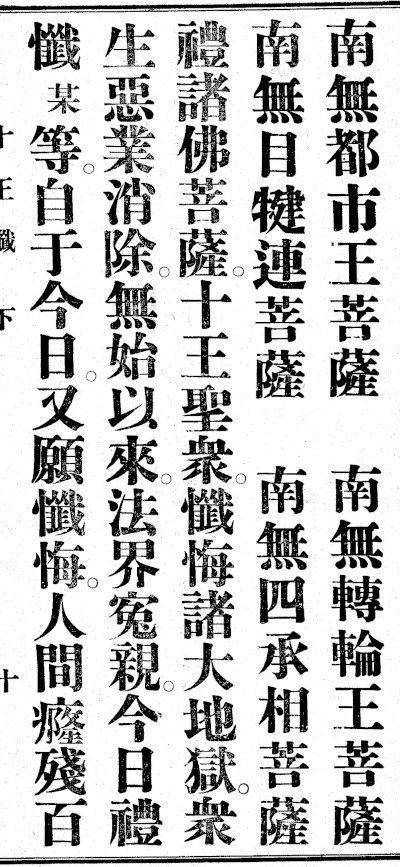 南無都市王菩薩　南無轉輪王菩薩
南無目犍連菩薩　南無四承相菩薩
禮諸佛菩薩。十王聖衆。懺悔諸大地獄。衆
生惡業消除。無始以來。法界寃親。今日禮
懺某等。自于今日。又願懺悔。人間癃殘百
十王懺　下　十